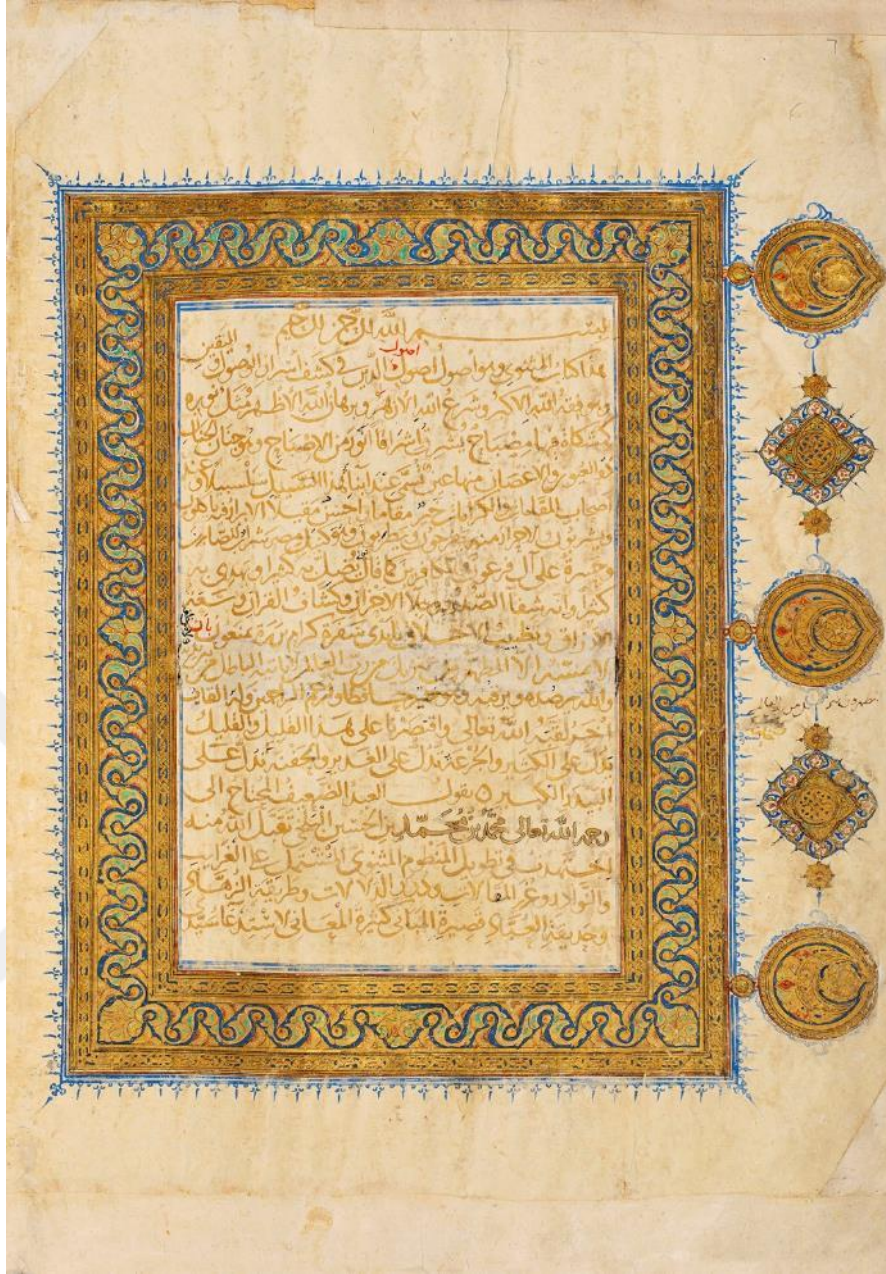 بسم الله الرحمن الرحيم
هذا كتاب المثنوى وهو اصول اصول اصول الدين فى كشف اسرار الوصول واليقين
وهو فقه الله الاكبر وشرع الله الازهر وبرهان الله الاظهر مثل نوره
كمشكاة فيها مصباح يشرق اشراقا انور من الاصباح وهو جنان الجنان
ذو العيون والاغصان منها عين تسمى عند ابناء هذا السبيل سلسبيلا وعند
اصحاب المقامات والكرامات خير مقاما واحسن مقيلا الابرار فيه ياكلون
ويشربون والاحرار منه يفرحون ويطربون وهو كنيل مصر شراب للصابرين
وحسرة على آل فرعون والكافرين كما قال يضل به كثيرا ويهدى به
كثيرا وانه شفا الصدور وجلا الاحزان وكشاف القران وسعة
الارزاق وتطييب الاخلاق بايدى سفرة كرام بررة يمنعون بان
لا يمسه الا المطهرون تنزيل من رب العالمين لا ياتيه الباطل
والله يرصده ويرقبه وهو خير حافظا وهو ارحم الراحمين وله القاب
اخر لقبه الله تعالى واقتصرنا على هذا القليل والقليل
يدل على الكثير والجرعة تدل على الغدير والحفنة تدل على
البيدر الكبير يقول العبد الضعيف المحتاج الى
رحمة الله تعالى محمد بن محمد بن الحسين البلخى تقبل الله منه
اجتهدت فى تطويل المنظوم المثنوى المشتمل على الغرايب
والنوادر وغرر المقالات ودرر الدلالات وطريقة الزهاد
وحديقة العباد قصيرة المبانى كثيرة المعانى لاستدعا سيدى